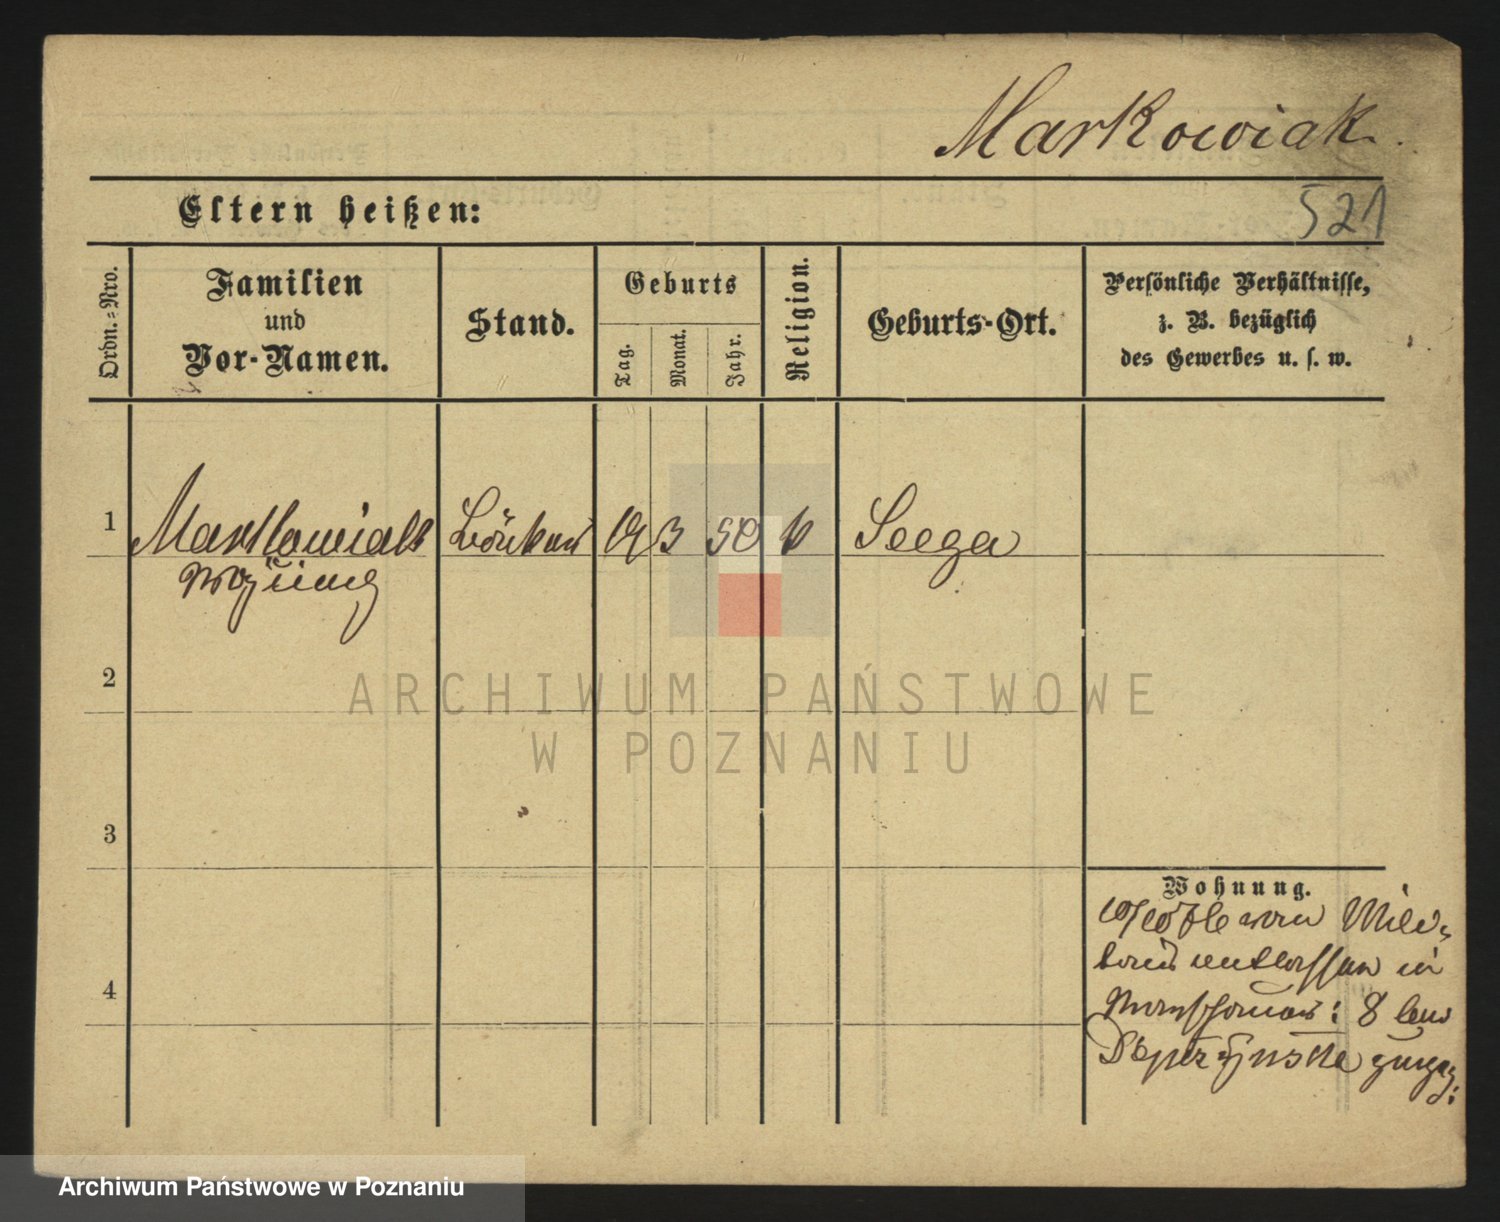 Markowiak.
521
Eltern heißen:
Ordn.=Nro.
Familien
und
Vor-Namen.
Stand.
Geburts
Tag.
Monat.
Jahr.
Religion.
Geburts-Ort.
Persönliche Verhältnisse,
z. B. bezüglich
des Gewerbes u. s. w.
1
Markowiak
19 3 50 k Seega
2
ARCHIWUM PAŃSTWOWE
W POZNANIU
3
Wohnung.
vom Mili-
tair entlassen in
4
: 8 bei
Archiwum Państwowe w Poznaniu